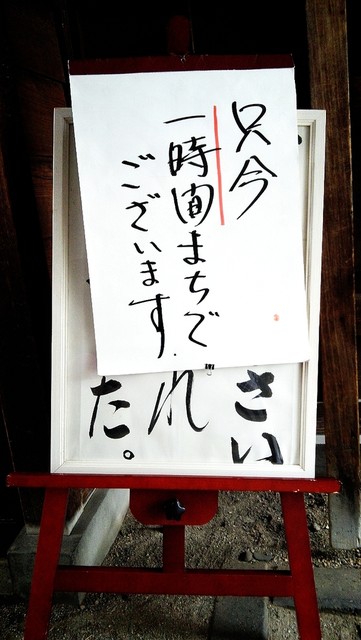 只今
一時間まちで
ございます
さい
れ
た。